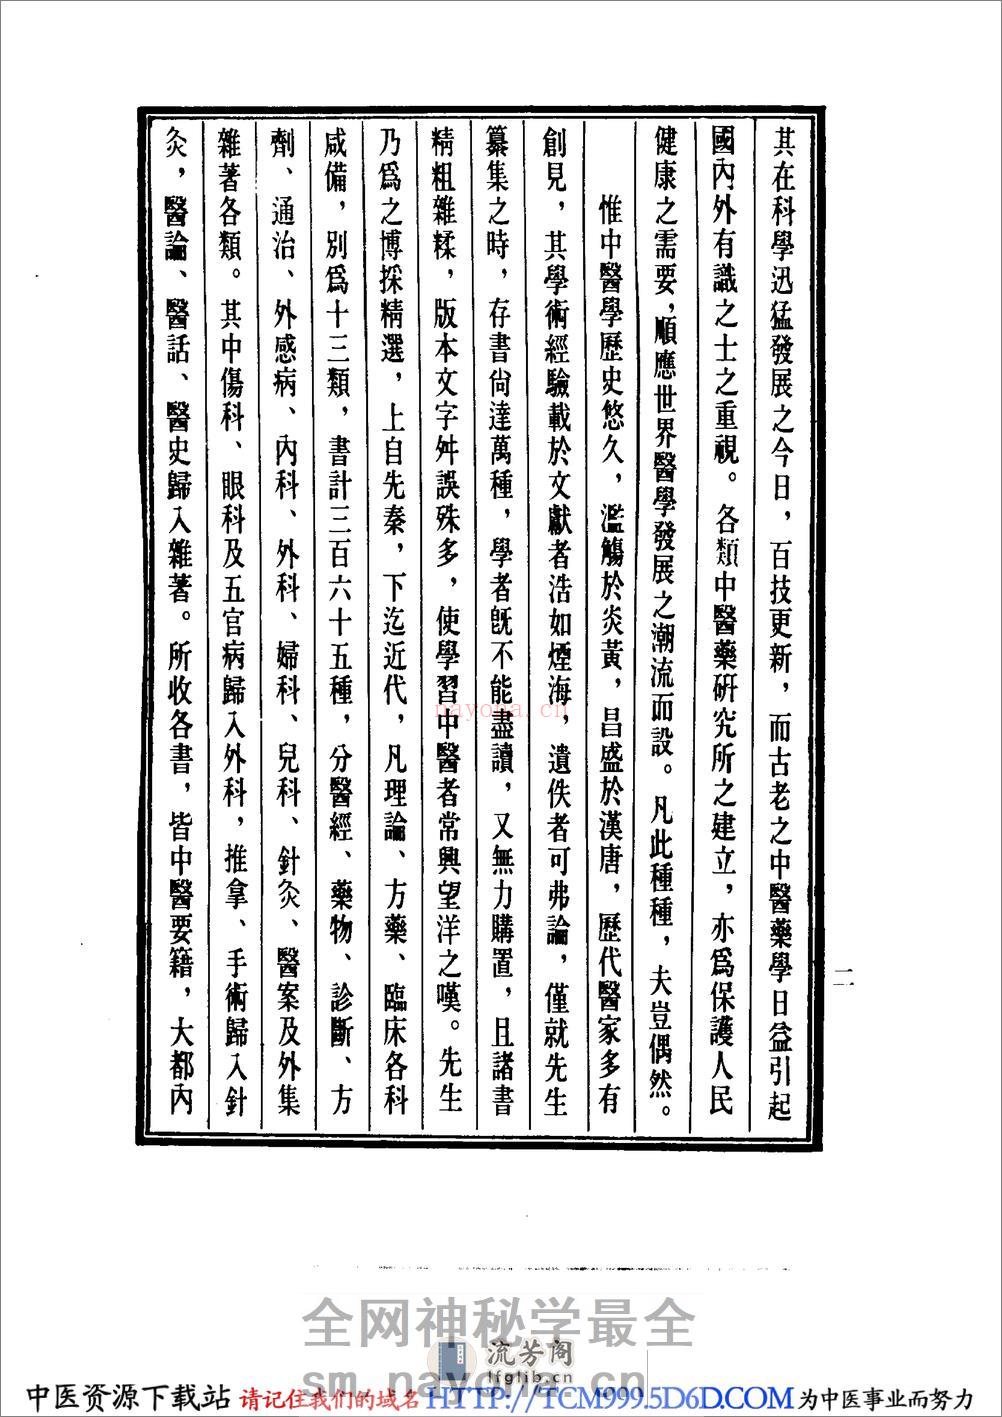 其在科學迅猛發展之今日，百技更新，而古老之中醫藥學日益引起
國內外有識之士之重視。各類中醫藥研究所之建立，亦爲保護人民
健康之需要，順應世界醫學發展之潮流而設。凡此種種，夫豈偶然。
惟中醫學歷史悠久，濫觴於炎黃，昌盛於漢唐，歷代醫家多有
創見，其學術經驗載於文獻者浩如煙海，遺佚者可弗論，僅就先生
纂集之時，存書尚達萬種，學者既不能盡讀，又無力購置，且諸書
精粗雜糅，版本文字舛誤殊多，使學習中醫者常興望洋之嘆。先生
乃爲之博採精選，上自先秦，下迄近代，凡理論、方藥、臨床各科
咸備，別爲十三類，書計三百六十五種，分醫經、藥物、診斷、方
劑、通治、外感病、內科、外科、婦科、兒科、針灸、醫案及外集
雜著各類。其中傷科、眼科及五官病歸入外科，推拿、手術歸入針
灸，醫論、醫話、醫史歸入雜著。所收各書，皆中醫要籍，大都內
二
nayona.cn
全网神秘学最全
流芳阁
lfglib.cn
sm.nayona.cn
中医资源下载站 请记住我们的域名 HTTP://TCM999.5D6D.COM 为中医事业而努力